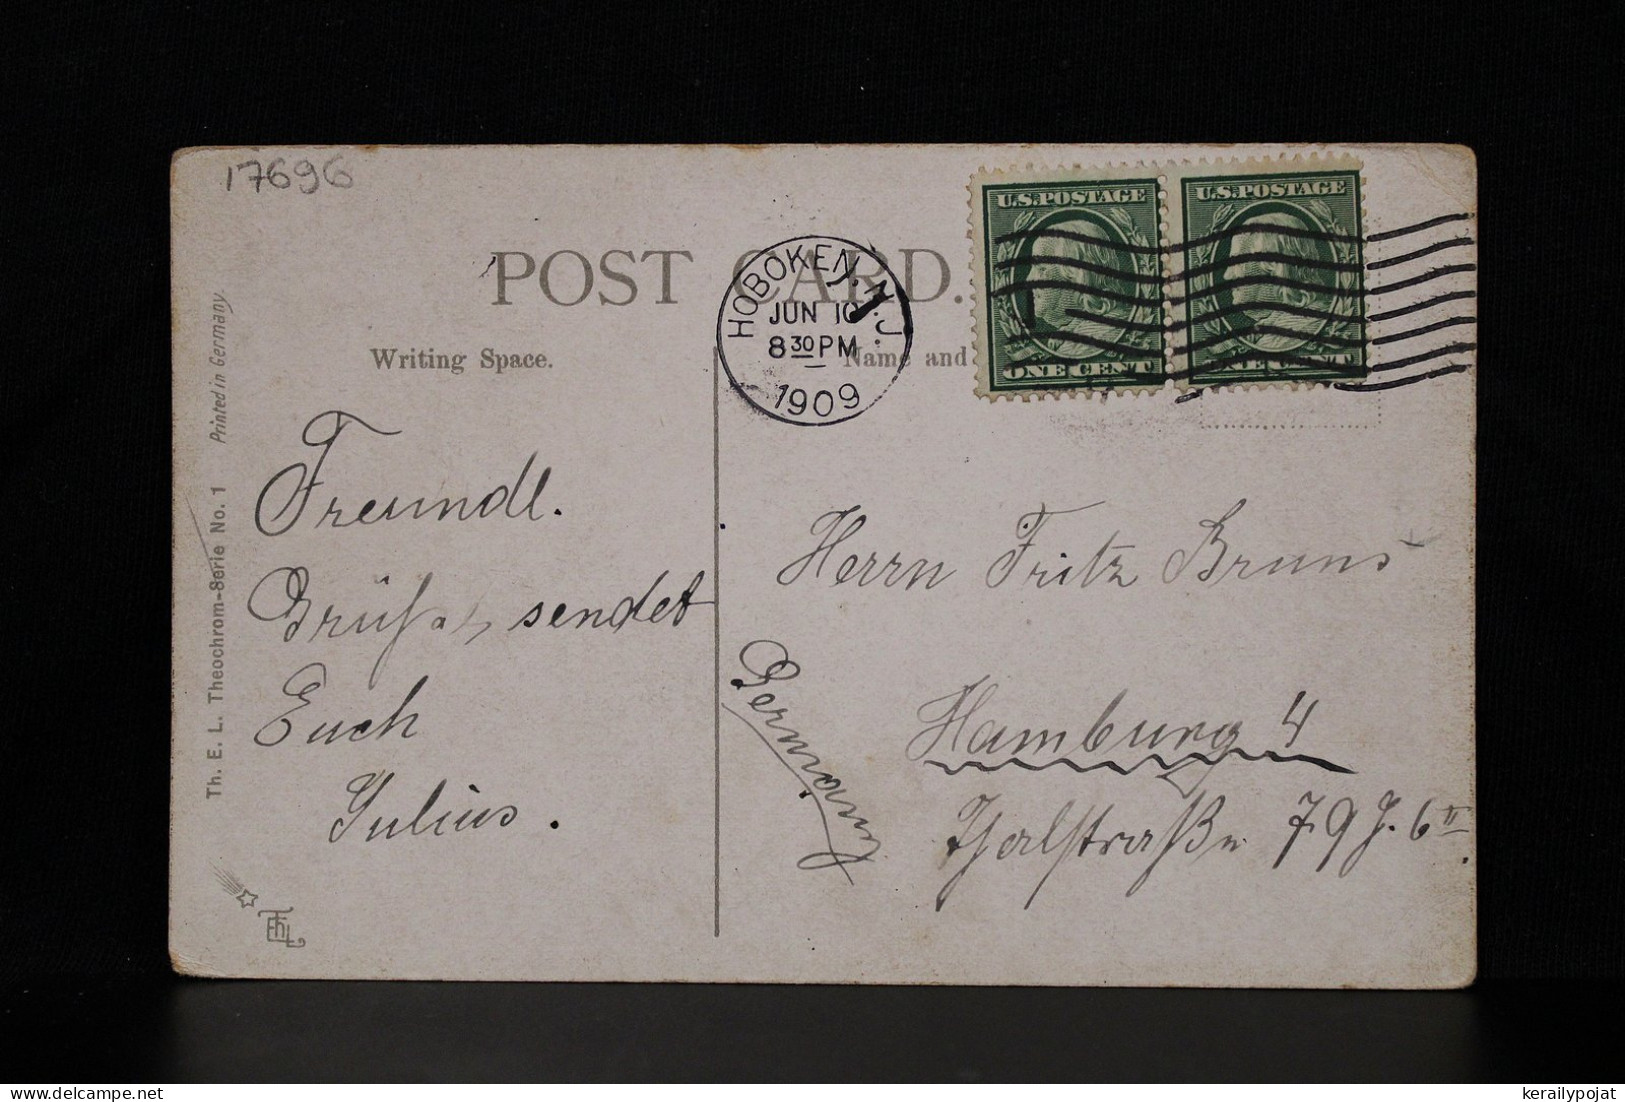 17696
POST CARD.
Writing Space.
Name and
HOBOKEN, N.J.
JUN 10
8 30 PM
1909
U.S. POSTAGE
ONE CENT
U.S. POSTAGE
ONE CENT
Th. E. L. Theochrom-Serie No. 1 Printed in Germany
Freundl.
sendet
Euch
Julius.
Herrn Fritz Bruns
Hamburg 4
Thalstraße 79
Germany
ThEL
© kerailypojat